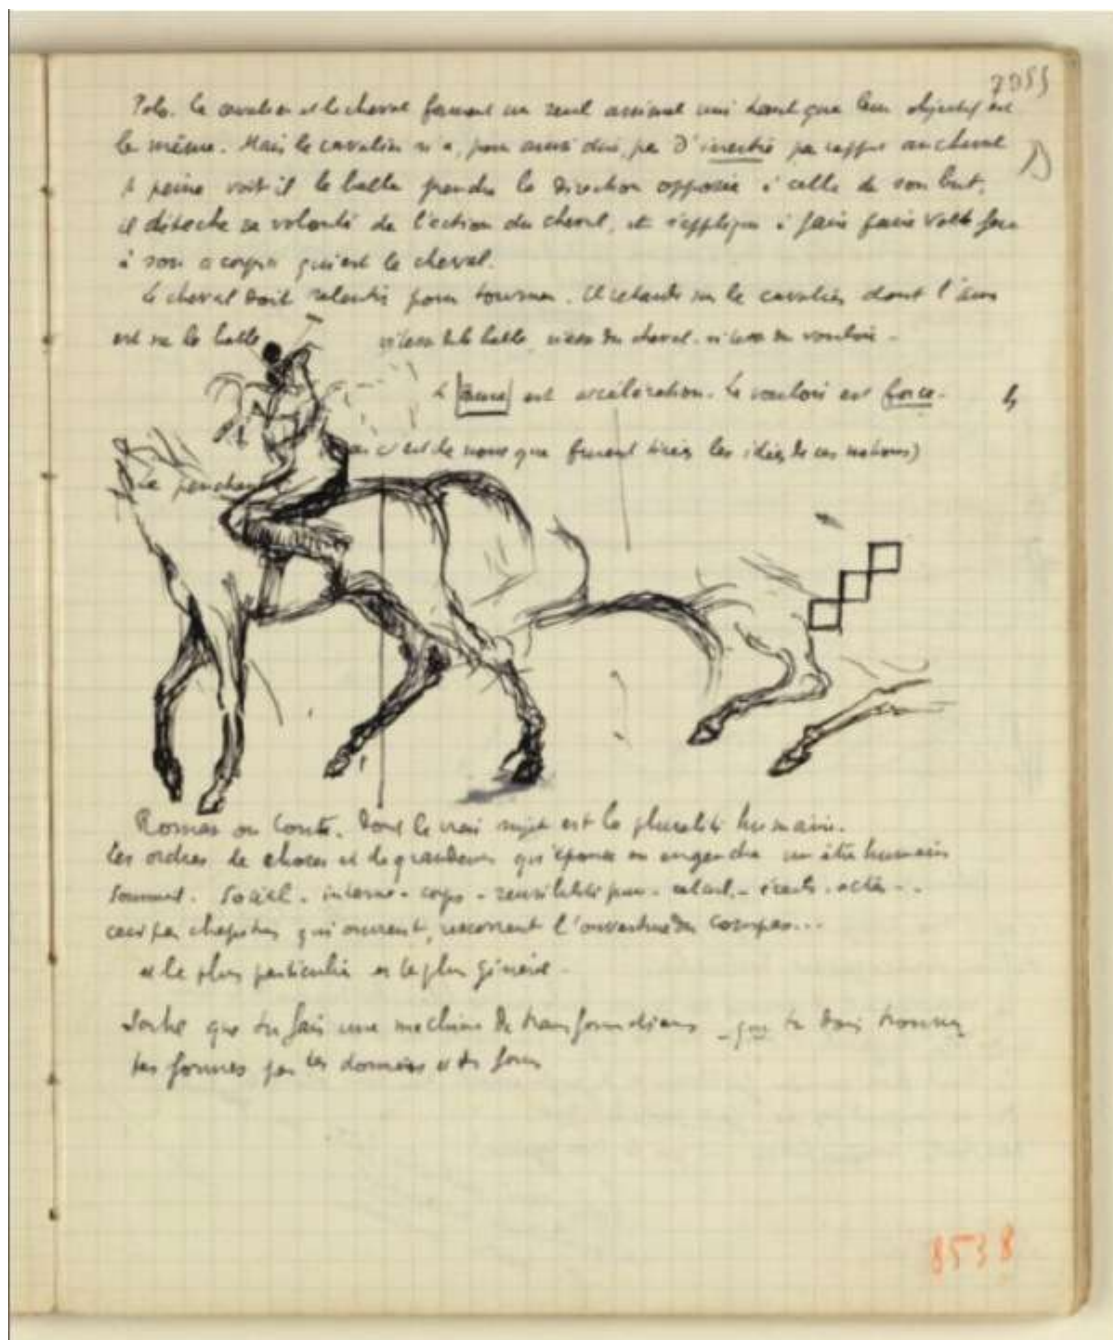 7055
Polo. Le cavalier et le cheval forment un seul animal uni tant que leur objectif est
le même. Mais le cavalier n'a, pour ainsi dire, pas d'inertie par rapport au cheval
A peine voit-il la balle prendre la direction opposée à celle de son but,
il détache sa volonté de l'action du cheval, et s'applique à faire faire volte face
à son corps qui est le cheval.
Le cheval doit ralentir pour tourner. Il retarde sur le cavalier dont l'âme
est sur la balle vitesse de la balle vitesse du cheval. vitesse du vouloir -
L'âme est accélération. Le vouloir est force.
c'est de nous que furent tirées les idées de ces notions)
Le penchant
Roman ou Conte. Dont le vrai sujet est la pluralité humaine.
Les ordres de choses et de grandeurs qu'épouse ou engendre un être humain
Sommeil. Social - interne - corps - sensibilité pure - calcul - écarts - actes - ..
ceci par chapitres qui ouvrent, l'ouverture du compas...
et le plus particulier et le plus général -
Sache que tu fais une machine de transformations - que tu dois trouver
tes formes par tes données et tes
8538